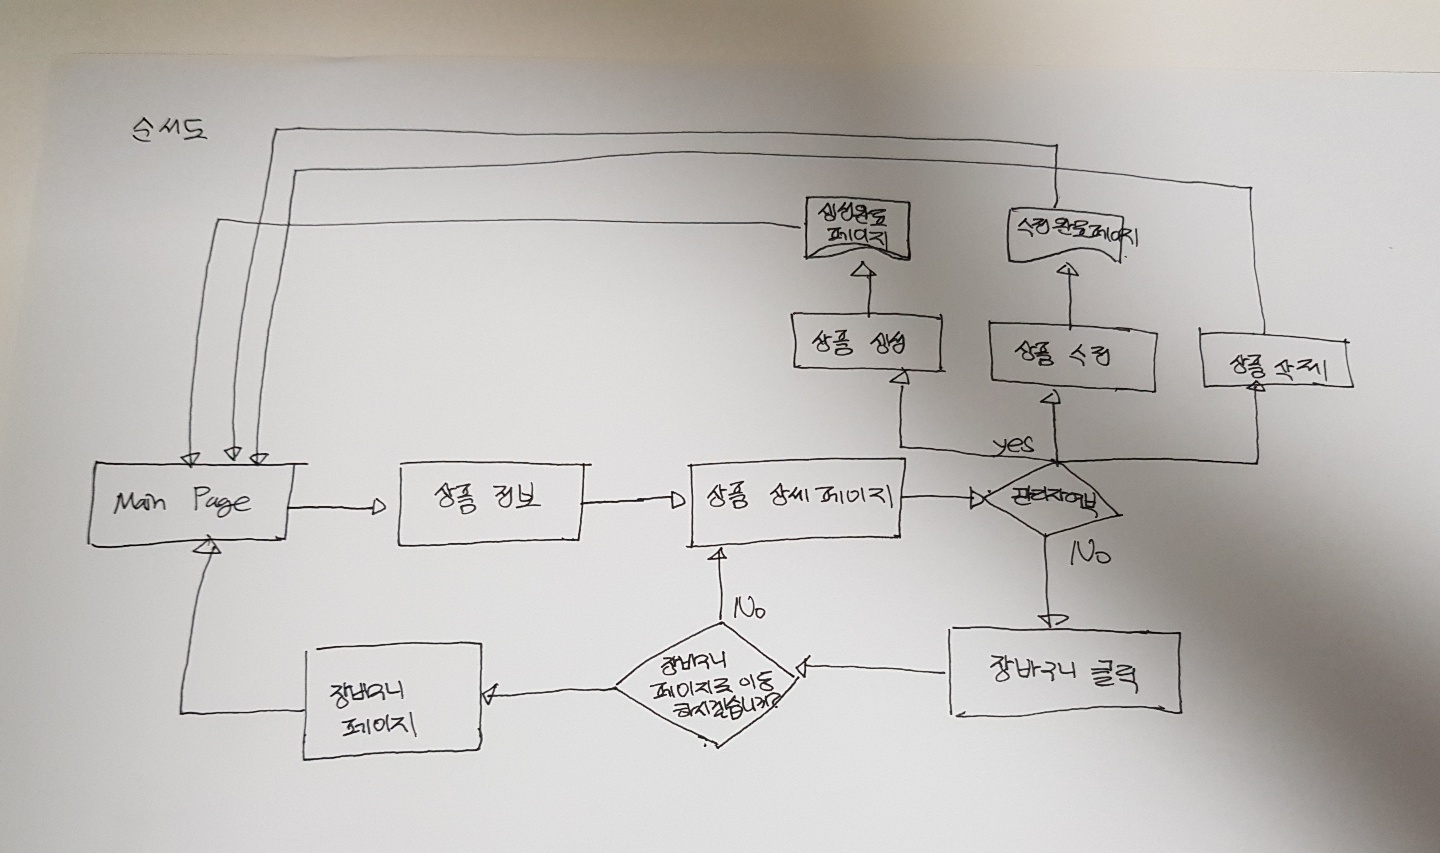 순서도
생성완료
페이지
수정완료페이지
상품 생성
상품 수정
상품 삭제
yes
Main Page
상품 정보
상품 상세페이지
관리자여부
No
No
장바구니
페이지로 이동
하시겠습니까?
장바구니 클릭
장바구니
페이지